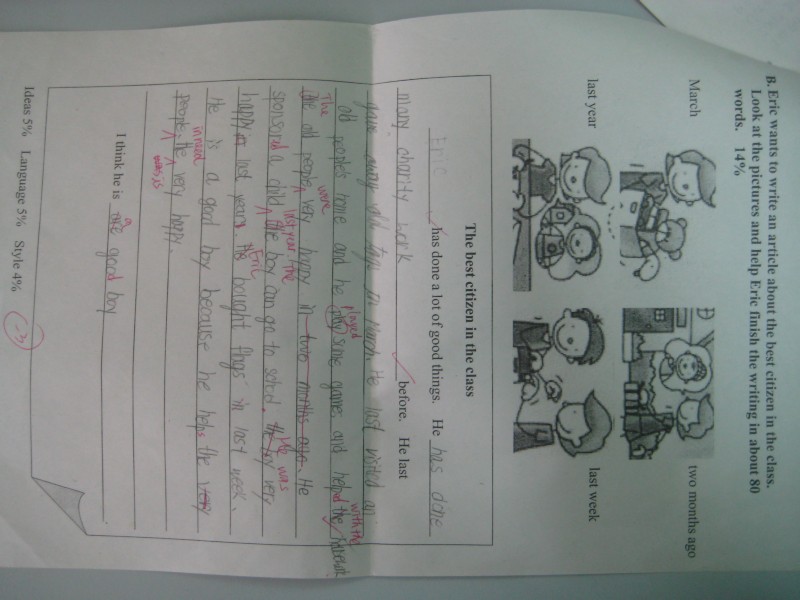 B. Eric wants to write an article about the best citizen in the class.
Look at the pictures and help Eric finish the writing in about 80
words. 14%
March
two months ago
last year
last week
The best citizen in the class
Eric has done a lot of good things. He has done
many charity work before. He last
gave away old toys in March. He last visited an
old people's home and he play played some game and helped the with the
The old people were very happy in two months ago. He
sponsored a child last year. The the boy can go to school. the boy He was very
happy last year. Eric He bought flags in last week.
He is a good boy because he helps the very
people in need. He was is very happy.
I think he is a are good boy
Ideas 5% Language 5% Style 4%